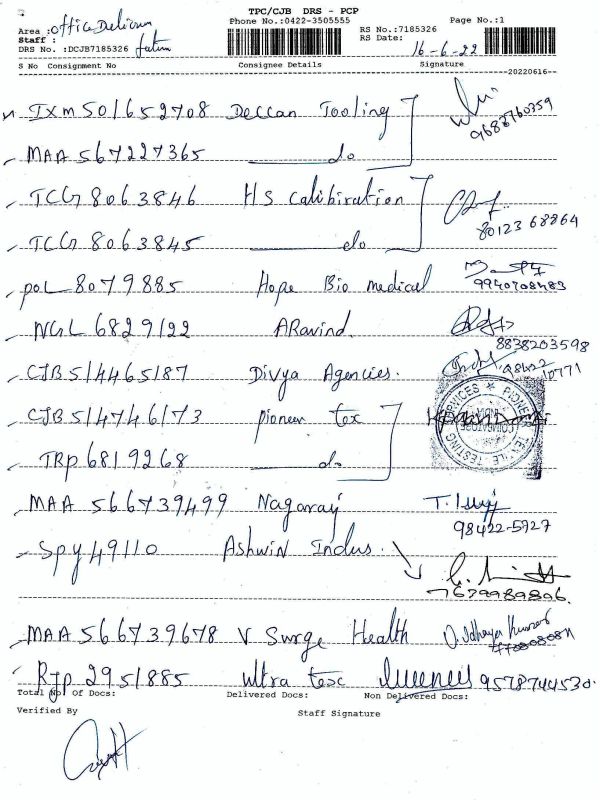 TPC/CJB DRS - PCP
Phone No.:0422-3505555 Page No.:1
Area : Office Delivery
Staff :
DRS No. :DCJB7185326
RS No.:7185326
RS Date: 16-6-22
S No Consignment No Consignee Details Signature
20220616
IXM501652708 Deccan Tooling
9688760359
MAA 567227365 do
TCG 8063846 HS Calibiration
80123 68864
TCG 8063845 do
POL 8079885 Hope Bio medical
9940708483
NGL 6829122 ARavind
8838203598
CJB514465187 Divya Agencies.
CJB514746173 pioneer tex
PIONEER TEXTILE TESTING SERVICES
COIMBATORE
TRP6819268 do
MAA 566739499 Nagaraj
98422-5927
SPY49110 Ashwin Indus.
7679989896.
MAA 566739678 V Surge Health
RJP 2951885 ultra tex 9578744530.
Total No of Docs: Delivered Docs: Non Delivered Docs:
Verified By Staff Signature